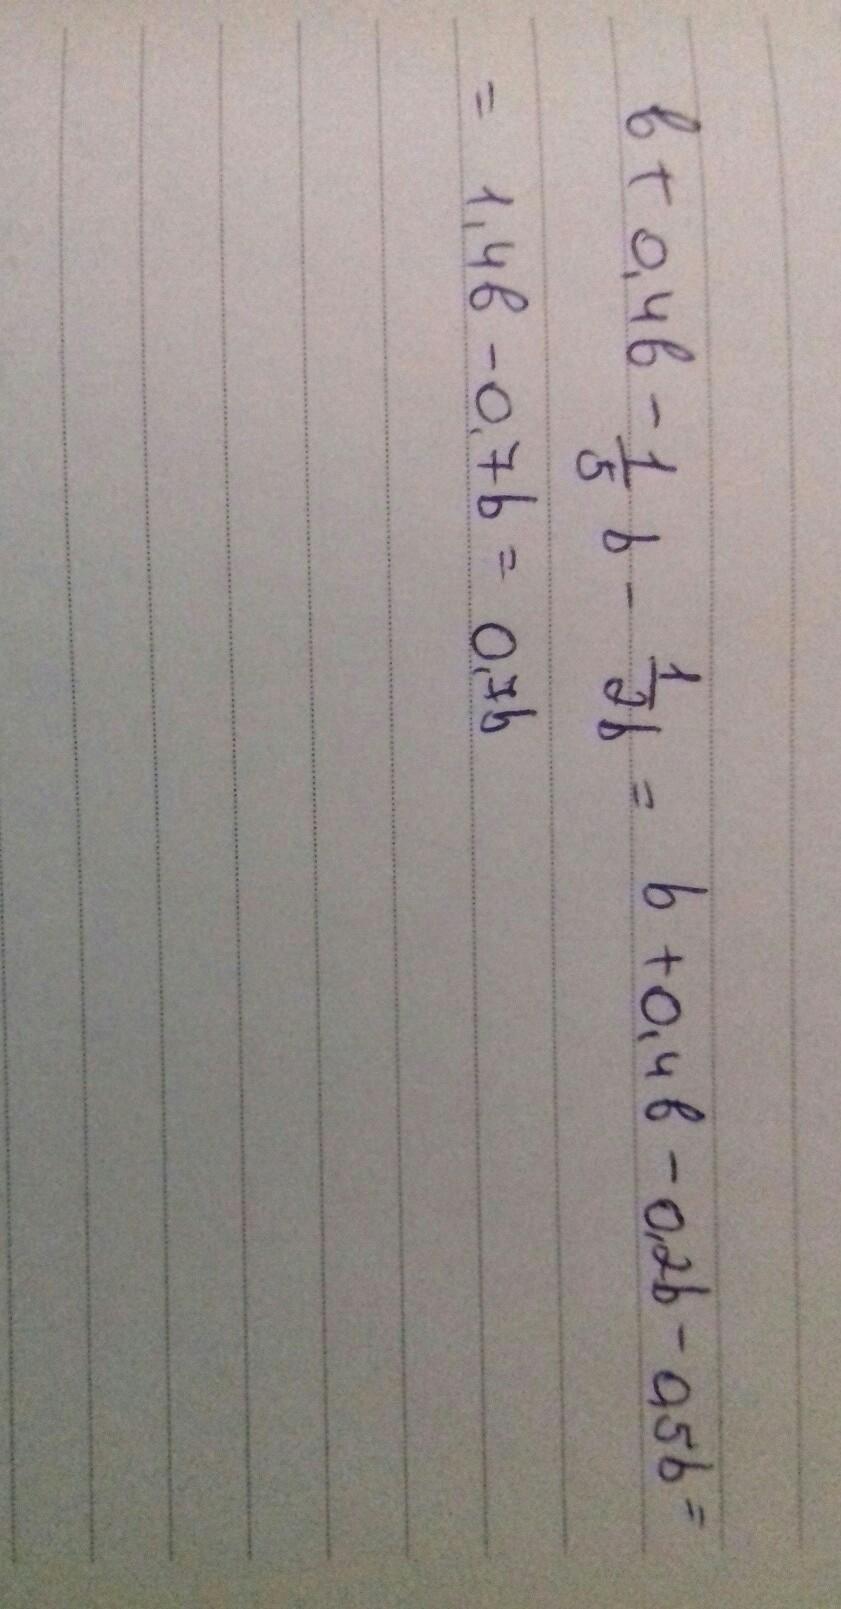 b + 0,4b - 1/5 b - 1/2 b = b + 0,4b - 0,2b - 0,5b =
= 1,4b - 0,7b = 0,7b